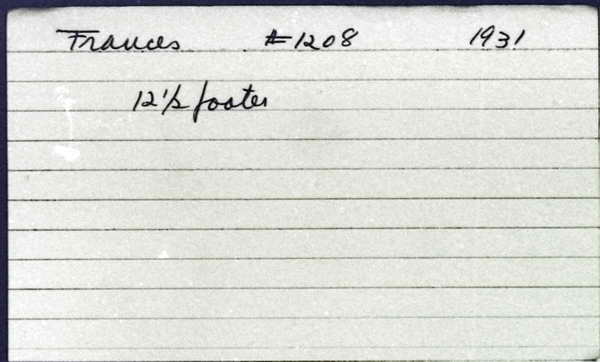 Frances #1208 1931
12 1/2 footer